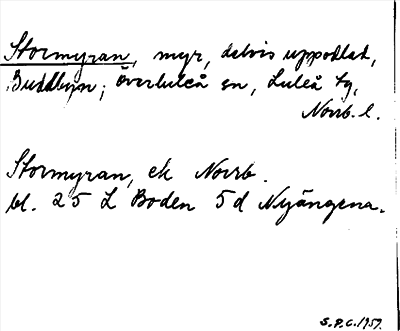 Stormyran, myr, delvis uppodlad,
Buddbyn; Överluleå sn, Luleå tg,
Norrb. l.
Stormyran, ek Norrb.
bl. 25 L Boden 5 d Nyängena.
S.P.C. 1957.